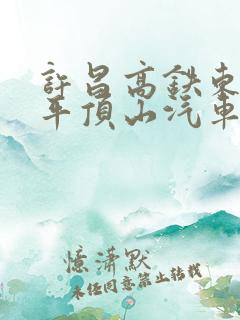 許昌高鉄東
平頂山汽車
憶瀟默
未经同意禁止转载